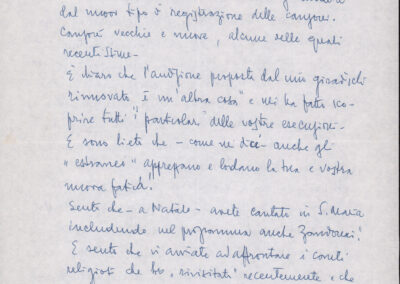 dal nuovo tipo di registrazione delle canzoni.
Canzoni vecchie e nuove, alcune delle quali
recentissime.
È chiaro che l'audizione proposta dal mio giradischi
rinnovato "è un'altra cosa" e mi ha fatto sco-
prire tutti i "particolari" delle vostre esecuzioni.
E sono lieto che - come mi dice - anche gli
"estranei" apprezzano e lodano la tua e vostra
nuova fatica!
Sento che - a Natale - avete cantato in S. Maria
includendo nel programma anche Zandonai!
E sento che vi avviate ad affrontare i canti
religiosi che ho "rivisitati" recentemente e che